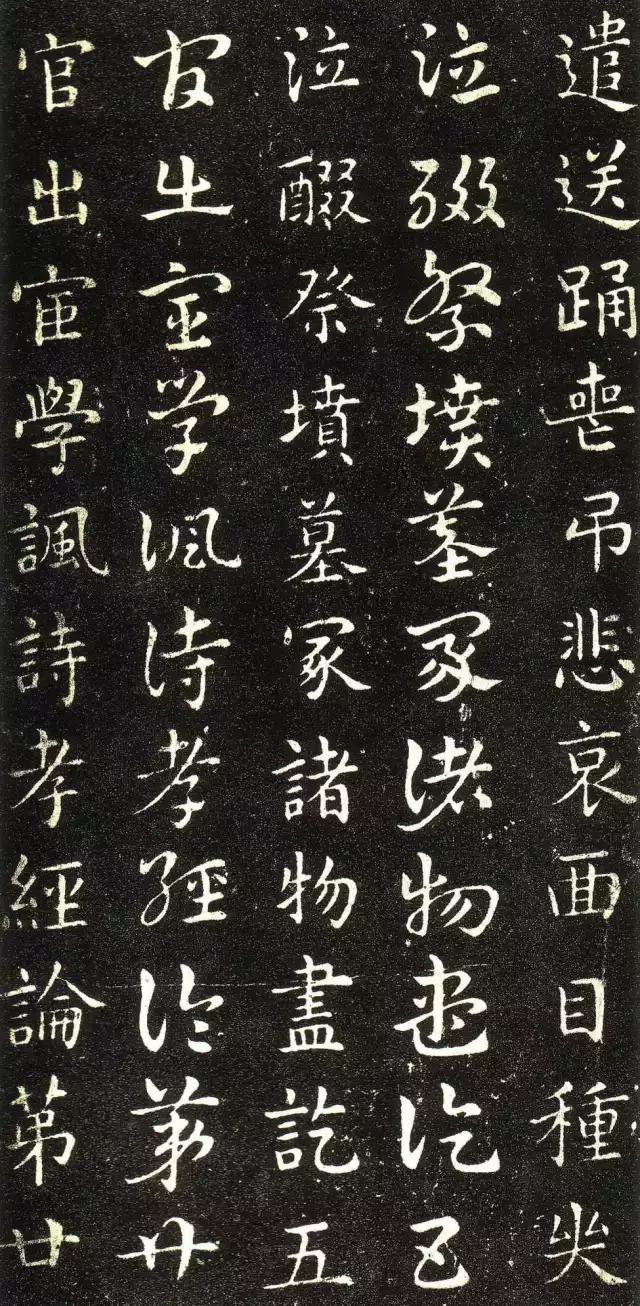 遣送踊喪吊悲哀面目種哭
泣醊祭墳墓冢諸物盡訖五
泣醊祭墳墓冢諸物盡訖五
官出宦學諷詩孝經論第廿
官出宦學諷詩孝經論第廿